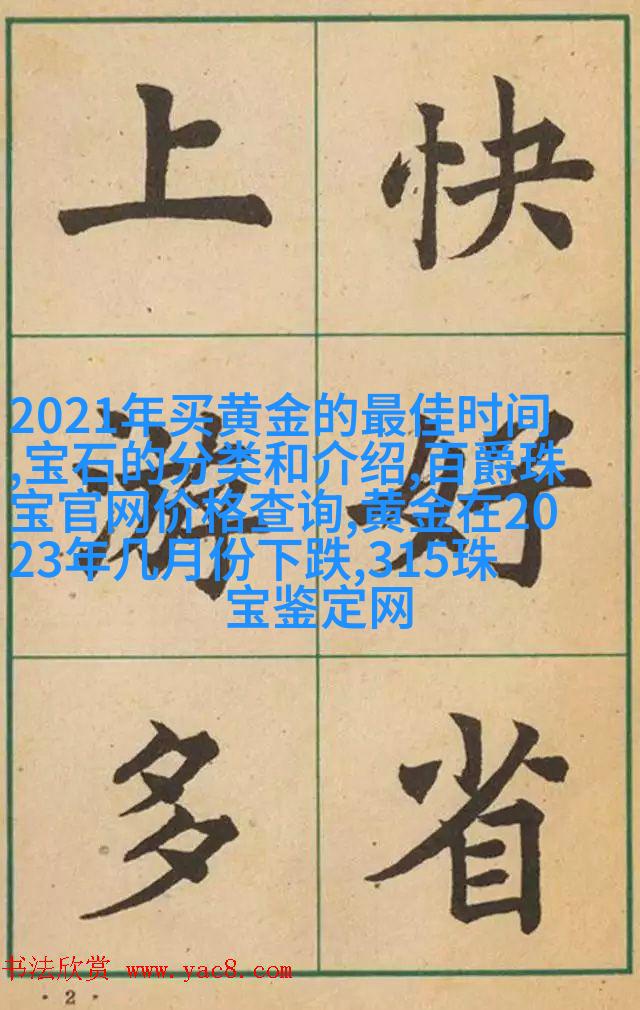 上游多
快好省
2021年买黄金的最佳时间
,宝石的分类和介绍,百爵珠
宝官网价格查询,黄金在20
23年几月份下跌,315珠
宝鉴定网
书法欣赏 www.yac8.com
· 2 ·